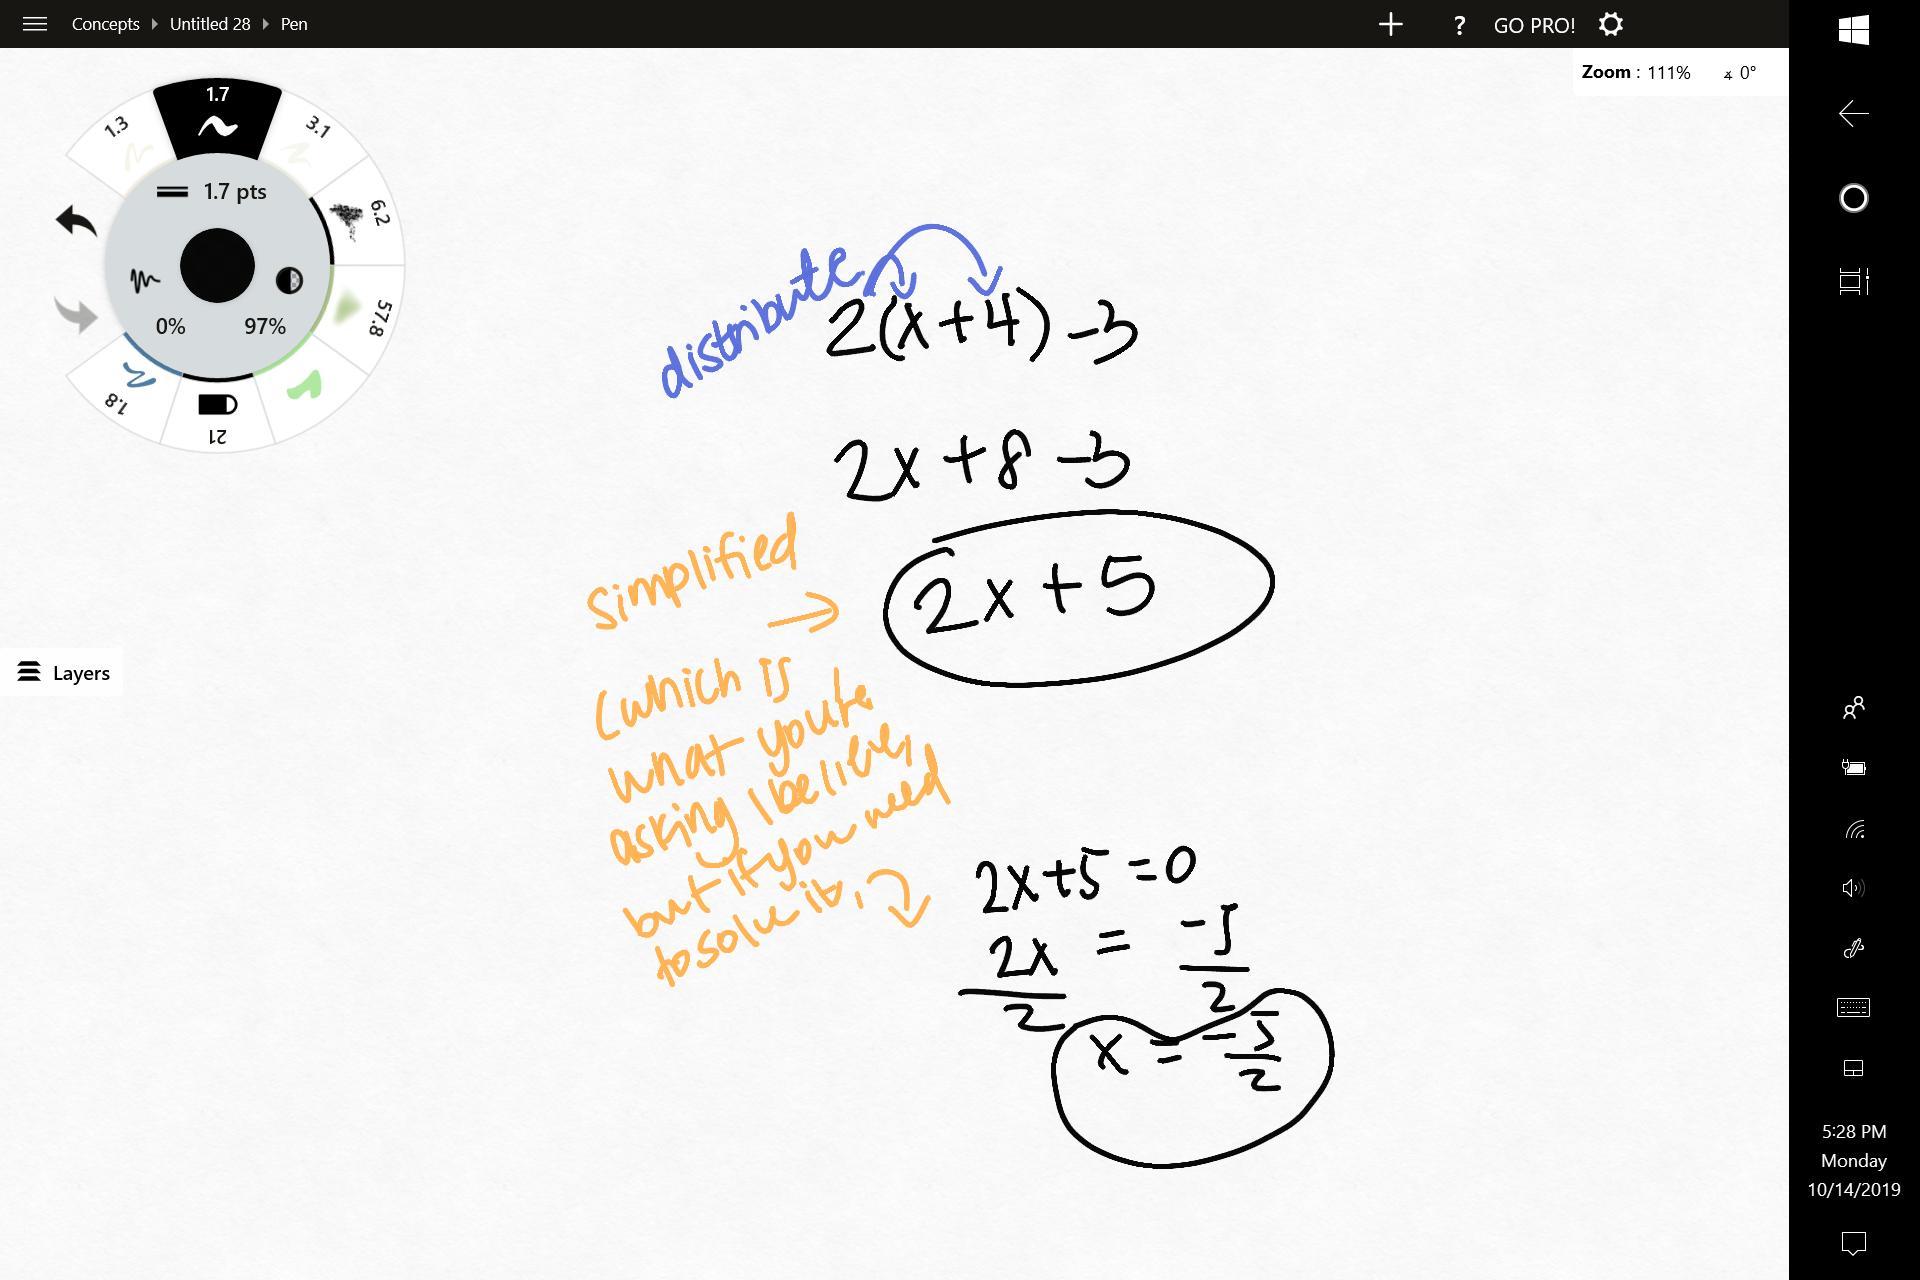 Concepts Untitled 28 Pen
? GO PRO!
Zoom : 111% 0°
1.7
1.3
3.1
1.7 pts
6.2
0% 97%
57.8
1.8
21
Layers
distribute
2(x+4) -3
2x+8 -3
simplified
→
2x+5
(which is
what you're
asking I believe,
but if you need
to solve it,
2x+5 =0
2x = -5
2 2
x = -5
2
5:28 PM
Monday
10/14/2019